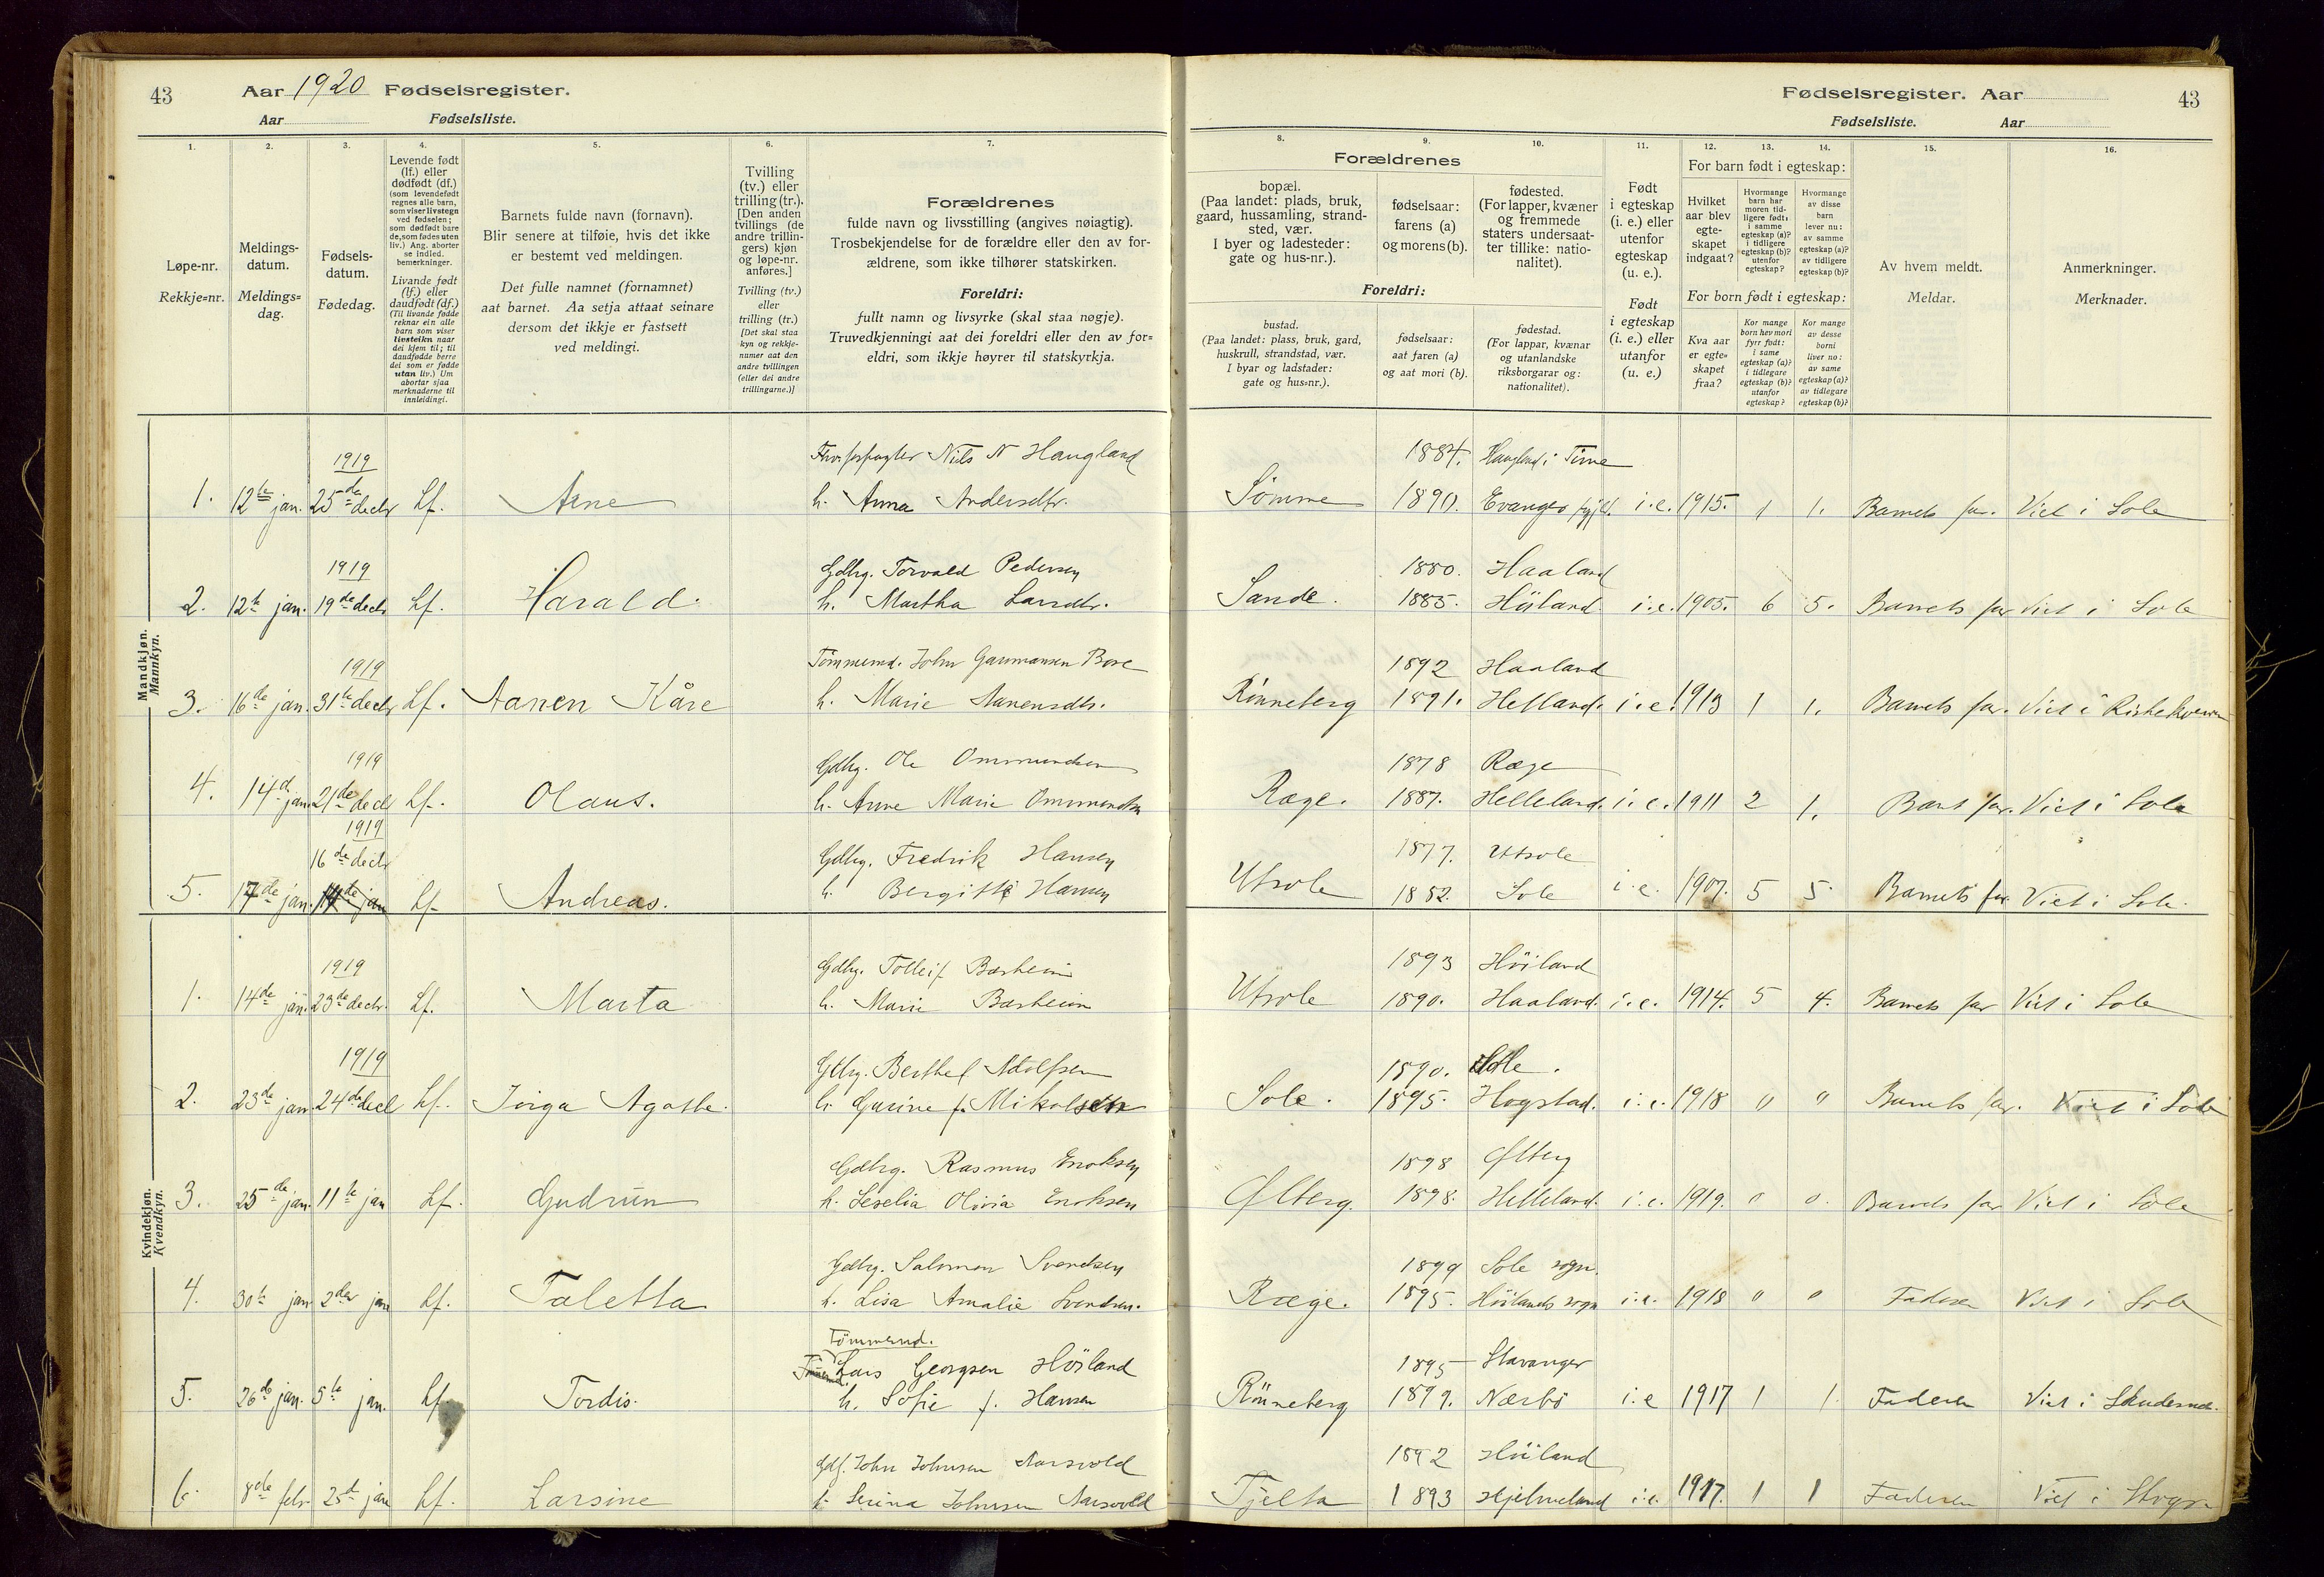 43
Aar 1920 Fødselsregister.
Aar Fødselsliste.
Fødselsregister. Aar
43
Fødselsliste. Aar
1. 2. 3. 4. 5. 6. 7. 8. 9. 10. 11. 12. 13. 14. 15. 16.
Løpe-nr.
Rekkje-nr.
Meldings-
datum.
Meldings-
dag.
Fødsels-
datum.
Fødedag.
Levende født
(lf.) eller
dødfødt (df.)
(som levendefødt
regnes alle barn,
som viser livstegn
ved fødselen;
som dødfødt bare
de, som fødes uten
liv.) Ang. aborter
se indled.
bemerkninger.
Livande født
(lf.) eller
daudfødt (df.)
(Til livande fødde
reknar ein alle
barn som viser
livsteikn naar
dei kjem til; til
daudfødde berre
dei som er fødde
utan liv.) Um
abortar sjaa
merknaderne til
innleidingi.
Barnets fulde navn (fornavn).
Blir senere at tilføie, hvis det ikke
er bestemt ved meldingen.
Det fulle namnet (fornamnet)
aat barnet. Aa setja attaat seinare
dersom det ikkje er fastsett
ved meldingi.
Tvilling
(tv.) eller
trilling (tr.).
[Den anden
tvillings (de
andre trillin-
gers) kjøn
og løpe-nr.
anføres.]
Tvilling (tv.)
eller
trilling (tr.)
[Det skal staa
kyn og rekkje-
numer aat den
andre tvillingen
(eller dei andre
trillingarne.)]
Forældrenes
fulde navn og livsstilling (angives nøiagtig).
Trosbekjendelse for de forældre eller den av for-
ældrene, som ikke tilhører statskirken.
Foreldri:
fullt namn og livsyrke (skal staa nøgje).
Truvedkjenningi aat dei foreldri eller den av for-
eldri, som ikkje høyrer til statskyrkja.
Forældrenes
bopæl.
(Paa landet: plads, bruk,
gaard, hussamling, strand-
sted, vær.
I byer og ladesteder:
gate og hus-nr.).
fødselsaar:
farens (a)
og morens (b).
fødested.
(For lapper, kvæner
og fremmede
staters undersaat-
ter tillike: natio-
nalitet).
Foreldri:
bustad.
(Paa landet: plass, bruk, gard,
huskrull, strandstad, vær.
I byar og ladstader:
gate og hus-nr.).
fødselsaar:
aat faren (a)
og aat mori (b).
fødestad.
(For lappar, kvænar
og utanlandske
riksborgarar og:
nationalitet).
Født
i egteskap
(i. e.) eller
utenfor
egteskap
(u. e.).
Født
i egteskap
(i. e.) eller
utanfor
(u. e.)
For barn født i egteskap:
Hvilket
aar blev
egte-
skapet
indgaat?
Hvormange
barn har
moren tid-
ligere født:
i samme
egteskap (a)?
i tidligere
egteskap (b)?
utenfor
egteskap?
Hvormange
av disse
barn
lever nu:
av samme
egteskap (a)?
av tidligere
egteskap (b)?
For born født i egteskap:
Kva aar
er egte-
skapet
fraa?
Kor mange
born hev mori
fyrr født:
i same
egteskap (a)?
i tidlegare
egteskap (b)?
utanfor
egteskap?
Kor mange
av desse
borni
liver no:
av same
egteskap (a)?
av tidlegare
egteskap (b)?
Av hvem meldt.
Meldar.
Anmerkninger.
Merknader.
Mandkjøn.
Mannkyn.
1919 Nils N Haugland 1884. Haugland i Time
1. 12te jan. 25de decbr Lf. Arne h. Anna Andersdtr. Sømme 1890. Evanger i. e. 1915. 1 1. Barnets far. Viet i Sole
1919 Gdbrg. Torvald Pedersen 1880. Haaland
2. 12te jan. 19de decbr Lf. Harald. h. Martha Larsdtr. Sande. 1885. Høiland. i. e. 1905. 6 5. Barnets far Viet i Sole
1919 Tømmermd. John Gaumansen Bore 1892 Haaland
3. 16de jan. 31te decbr Lf. Aanen Kåre h. Marie Aanensdtr. Rönneberg 1891. Helland. i. e. 1913 1 1. Barnets far. Viet i
1919 Gdbrg. Ole Ommundsen 1878 Ræge
4. 14d jan. 21de decb Lf. Olaus. h. Anne Marie Ommundsen Ræge. 1887. Helleland. i. e. 1911 2 1. Barnets far. Viet i Sole
1919
16de decbr Gdbrg. Fredrik Hansen 1877. Utsole
5. 17de jan. 14de jan Lf. Andreas. h. Bergitte Hansen Utsole 1882. Sole i. e. 1907. 5 5. Barnets far. Viet i Sole.
Kvindekjøn.
Kvendkyn.
1919 Gdbrg. Tolleif Bærheim 1893 Høiland
1. 14de jan. 23de decbr. Lf. Marta h. Marie Bærheim Utsole 1890. Haaland. i. e. 1914. 5 4. Barnets far Viet i Sole
1919 Gdbrg. Berthel Adolfsen 1890. Sole.
2. 23de jan. 24de decb Lf. Inga Agathe. h. Gurine f. Mikalsen Sole. 1895. Hogstad. i. e. 1918 " " Barnets far. Viet i Sole
Gdbrg. Rasmus Enoksen 1898 Ølberg
3. 25de jan. 11te jan Lf. Gudrun h. Seselia Olivia Enoksen Ølberg. 1898. Helleland. i. e. 1919. 0 0. Barnets far Viet i Sole
Gdbrg. Salomon Svendsen 1899 Sole sogn.
4. 30te jan 2den jan Lf. Taletta h. Lisa Amalie Svendsen. Ræge. 1895. Høilands sogn i. e. 1918 0 0 Faderen Viet i Sole
Tømmermd.
Lars Georgsen Høiland 1895 Stavanger
5. 26de jan. 5te jan. Lf. Tordis. h. Sofie f. Hansen Rönneberg 1899. Nærbø i. e 1917 1 1 Faderen Viet i Skudenes.
John Johnsen Aarsvold 1892 Høiland
6. 8de febr 25de jan Lf. Larsine h. Serina Johnsen Aarsvold Tjelta 1893 Hjelmeland i. e. 1917. 1 1 Faderen Viet i